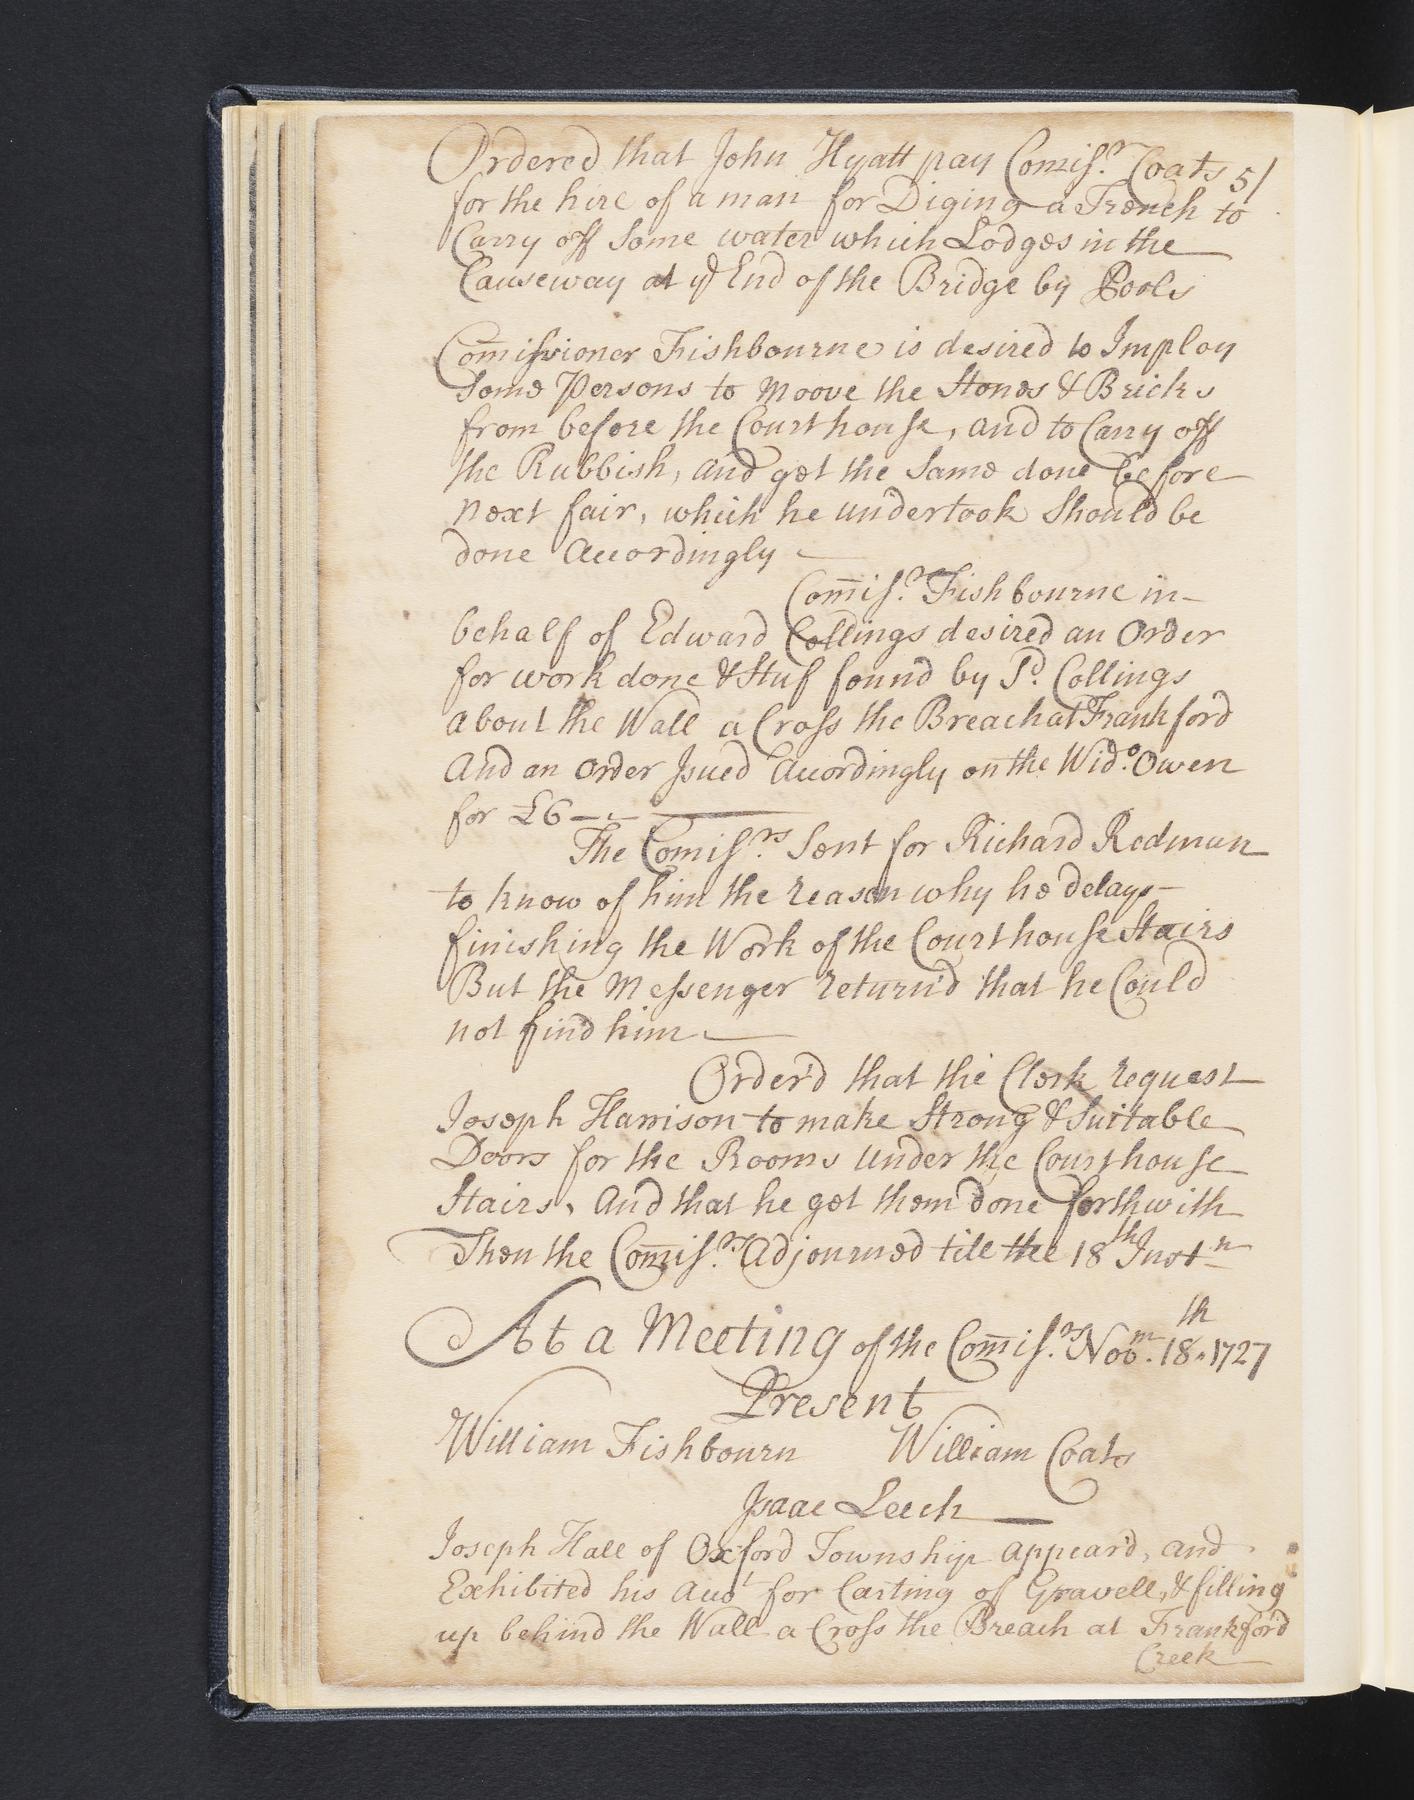 Ordered that John Hyatt pay Comiſ.r Coats 5/
for the hire of a man for Diging a Trench to
Carry off Some water which Lodges in the
Causeway at ye End of the Bridge by Pools
Com̅iſsioner Fishbourne is desired to Imploy
Some Persons to moove the Stones & Bricks
from before the Courthouſe, and to Carry off
the Rubbish, and get the Same done before
next fair, which he undertook Should be
done Accordingly
Com̅iſ.r Fishbourne in-
behalf of Edward Collings desired an Order
for work done & Stuf found by Sd. Collings
about the Wall a Croſs the Breach at Frankford
And an Order Isued Accordingly on the Wido. Owen
for £6 - -
The Comiſ.rs Sent for Richard Redman
to know of him the reason why he delays
finishing the Work of the Courthouſe Stairs
But the Meſsenger return'd that he Could
not find him
Order'd that the Clerk request
Joseph Harrison to make Strong & Suitable
Doors for the Rooms under the Courthouſe
Stairs, and that he get them done forthwith
Then the Com̅iſ.rs Adjourned till the 18th Instn
At a Meeting of the Com̅iſ.rs Nobm. 18th. 1727
Present
William Fishbourn William Coats
Isaac Leech
Joseph Hall of Oxford Township appear'd, and
Exhibited his Acot for Carting of Gravell, & filling
up behind the Wall a Croſs the Breach at Frankford
Creek